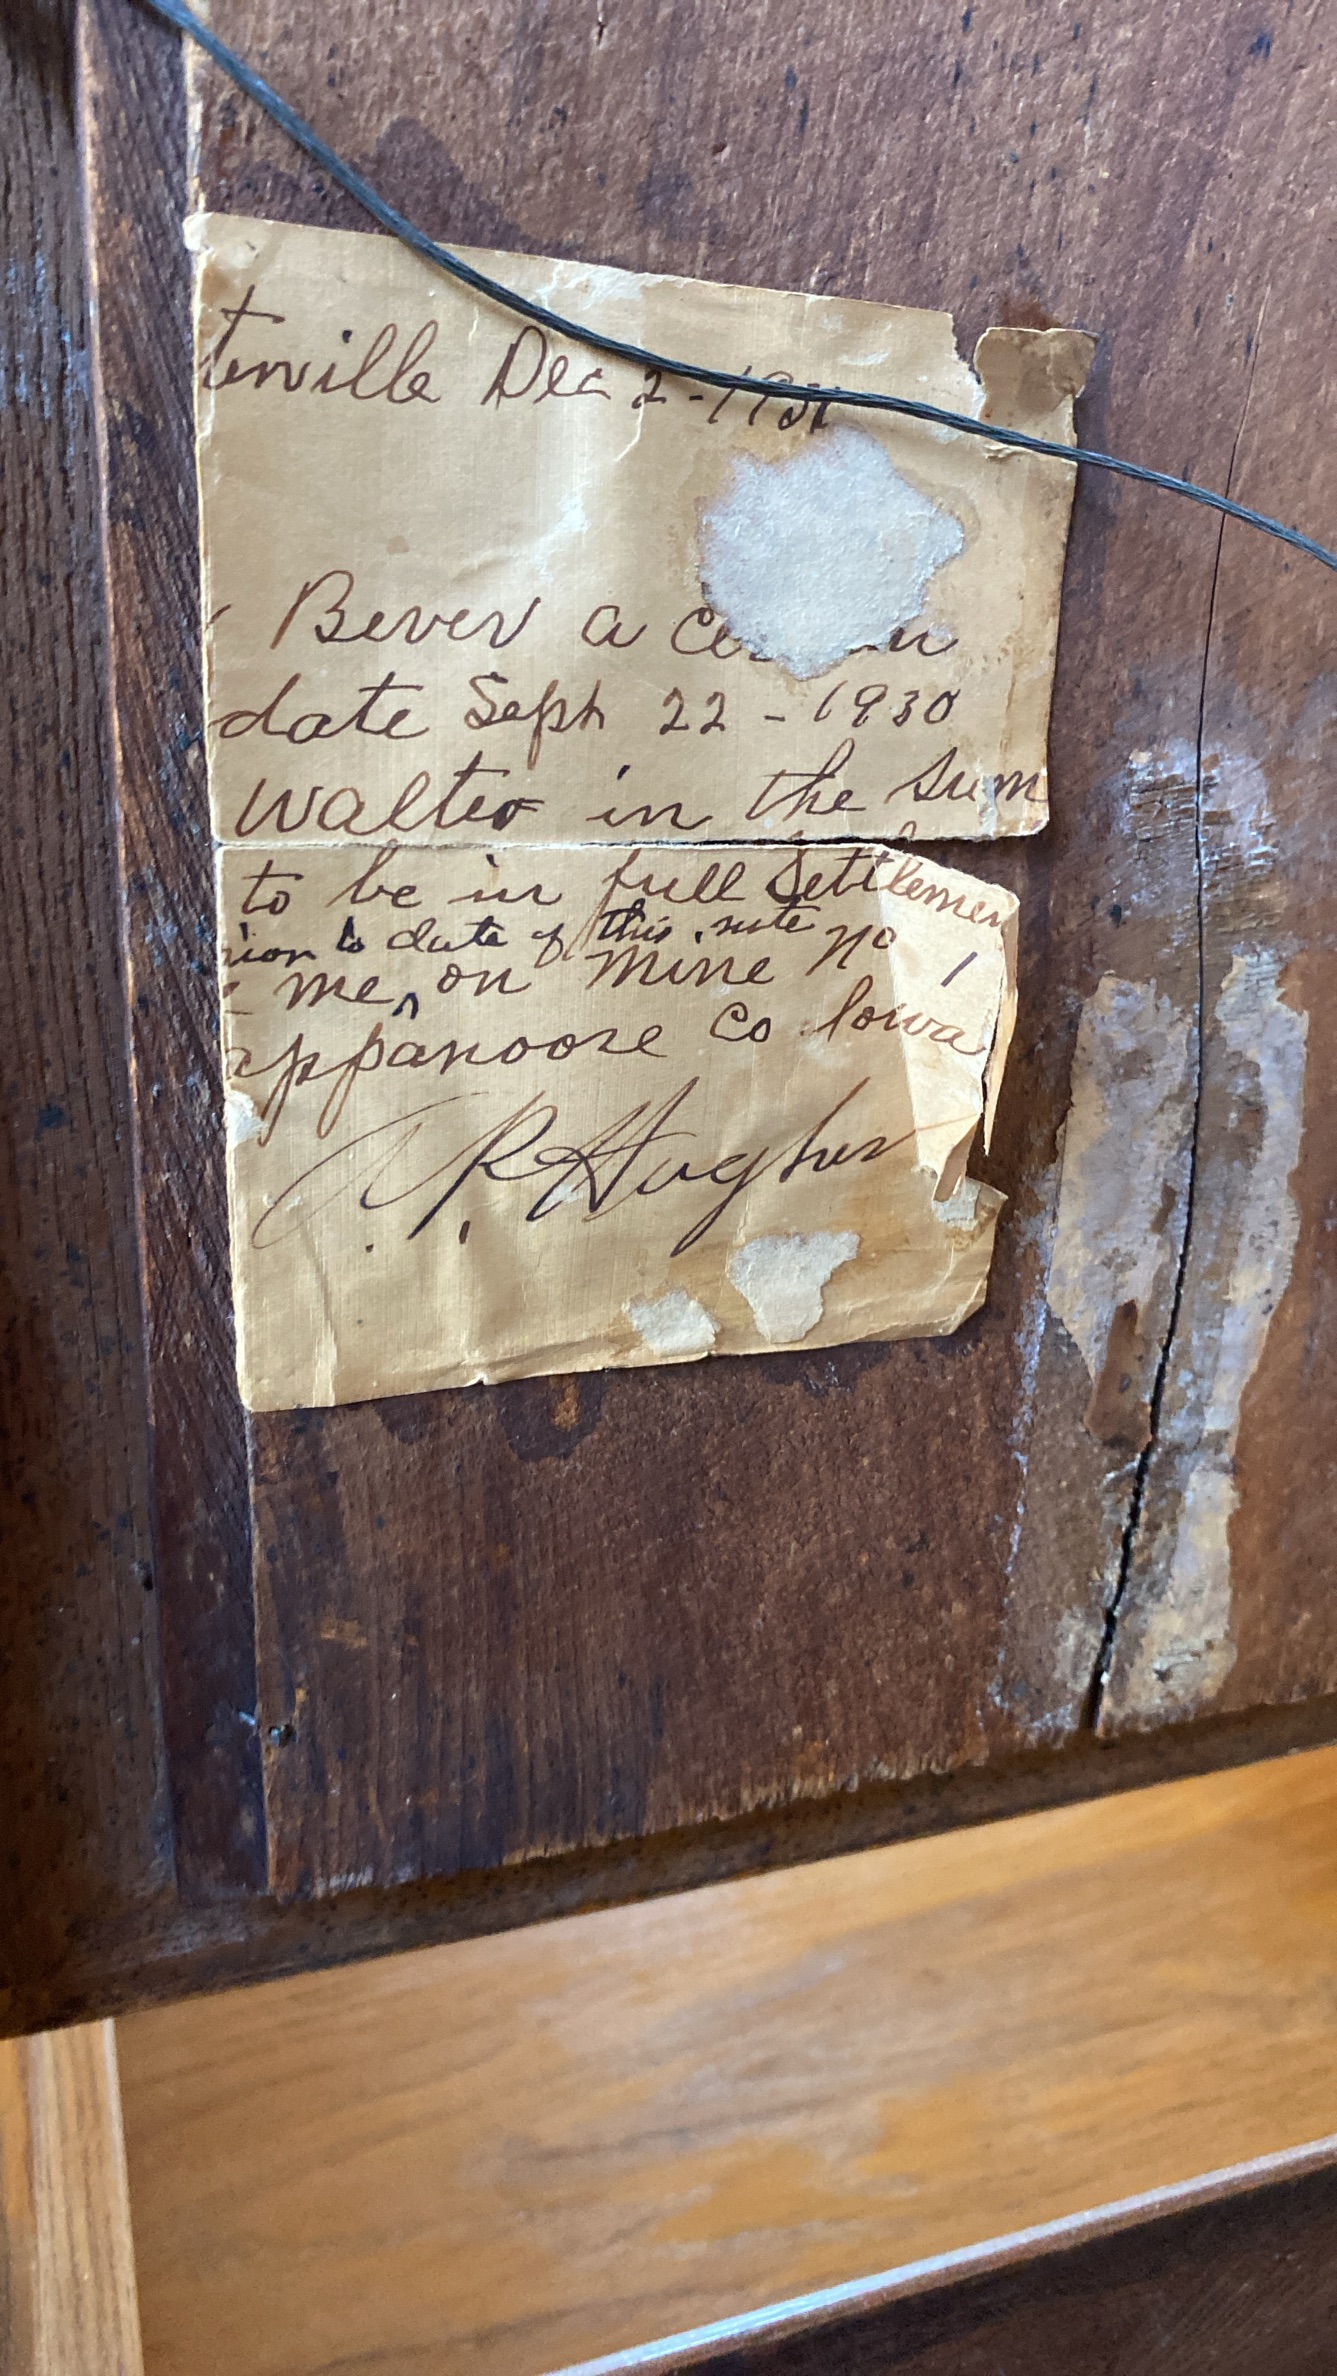 terville Dec 2-1931
Bever a
date Sept 22 - 1930
Walter in the sum
to be in full Settlemen
rior to date of this note
me, on Mine No 1
appanoose Co Iowa
R. Hughes